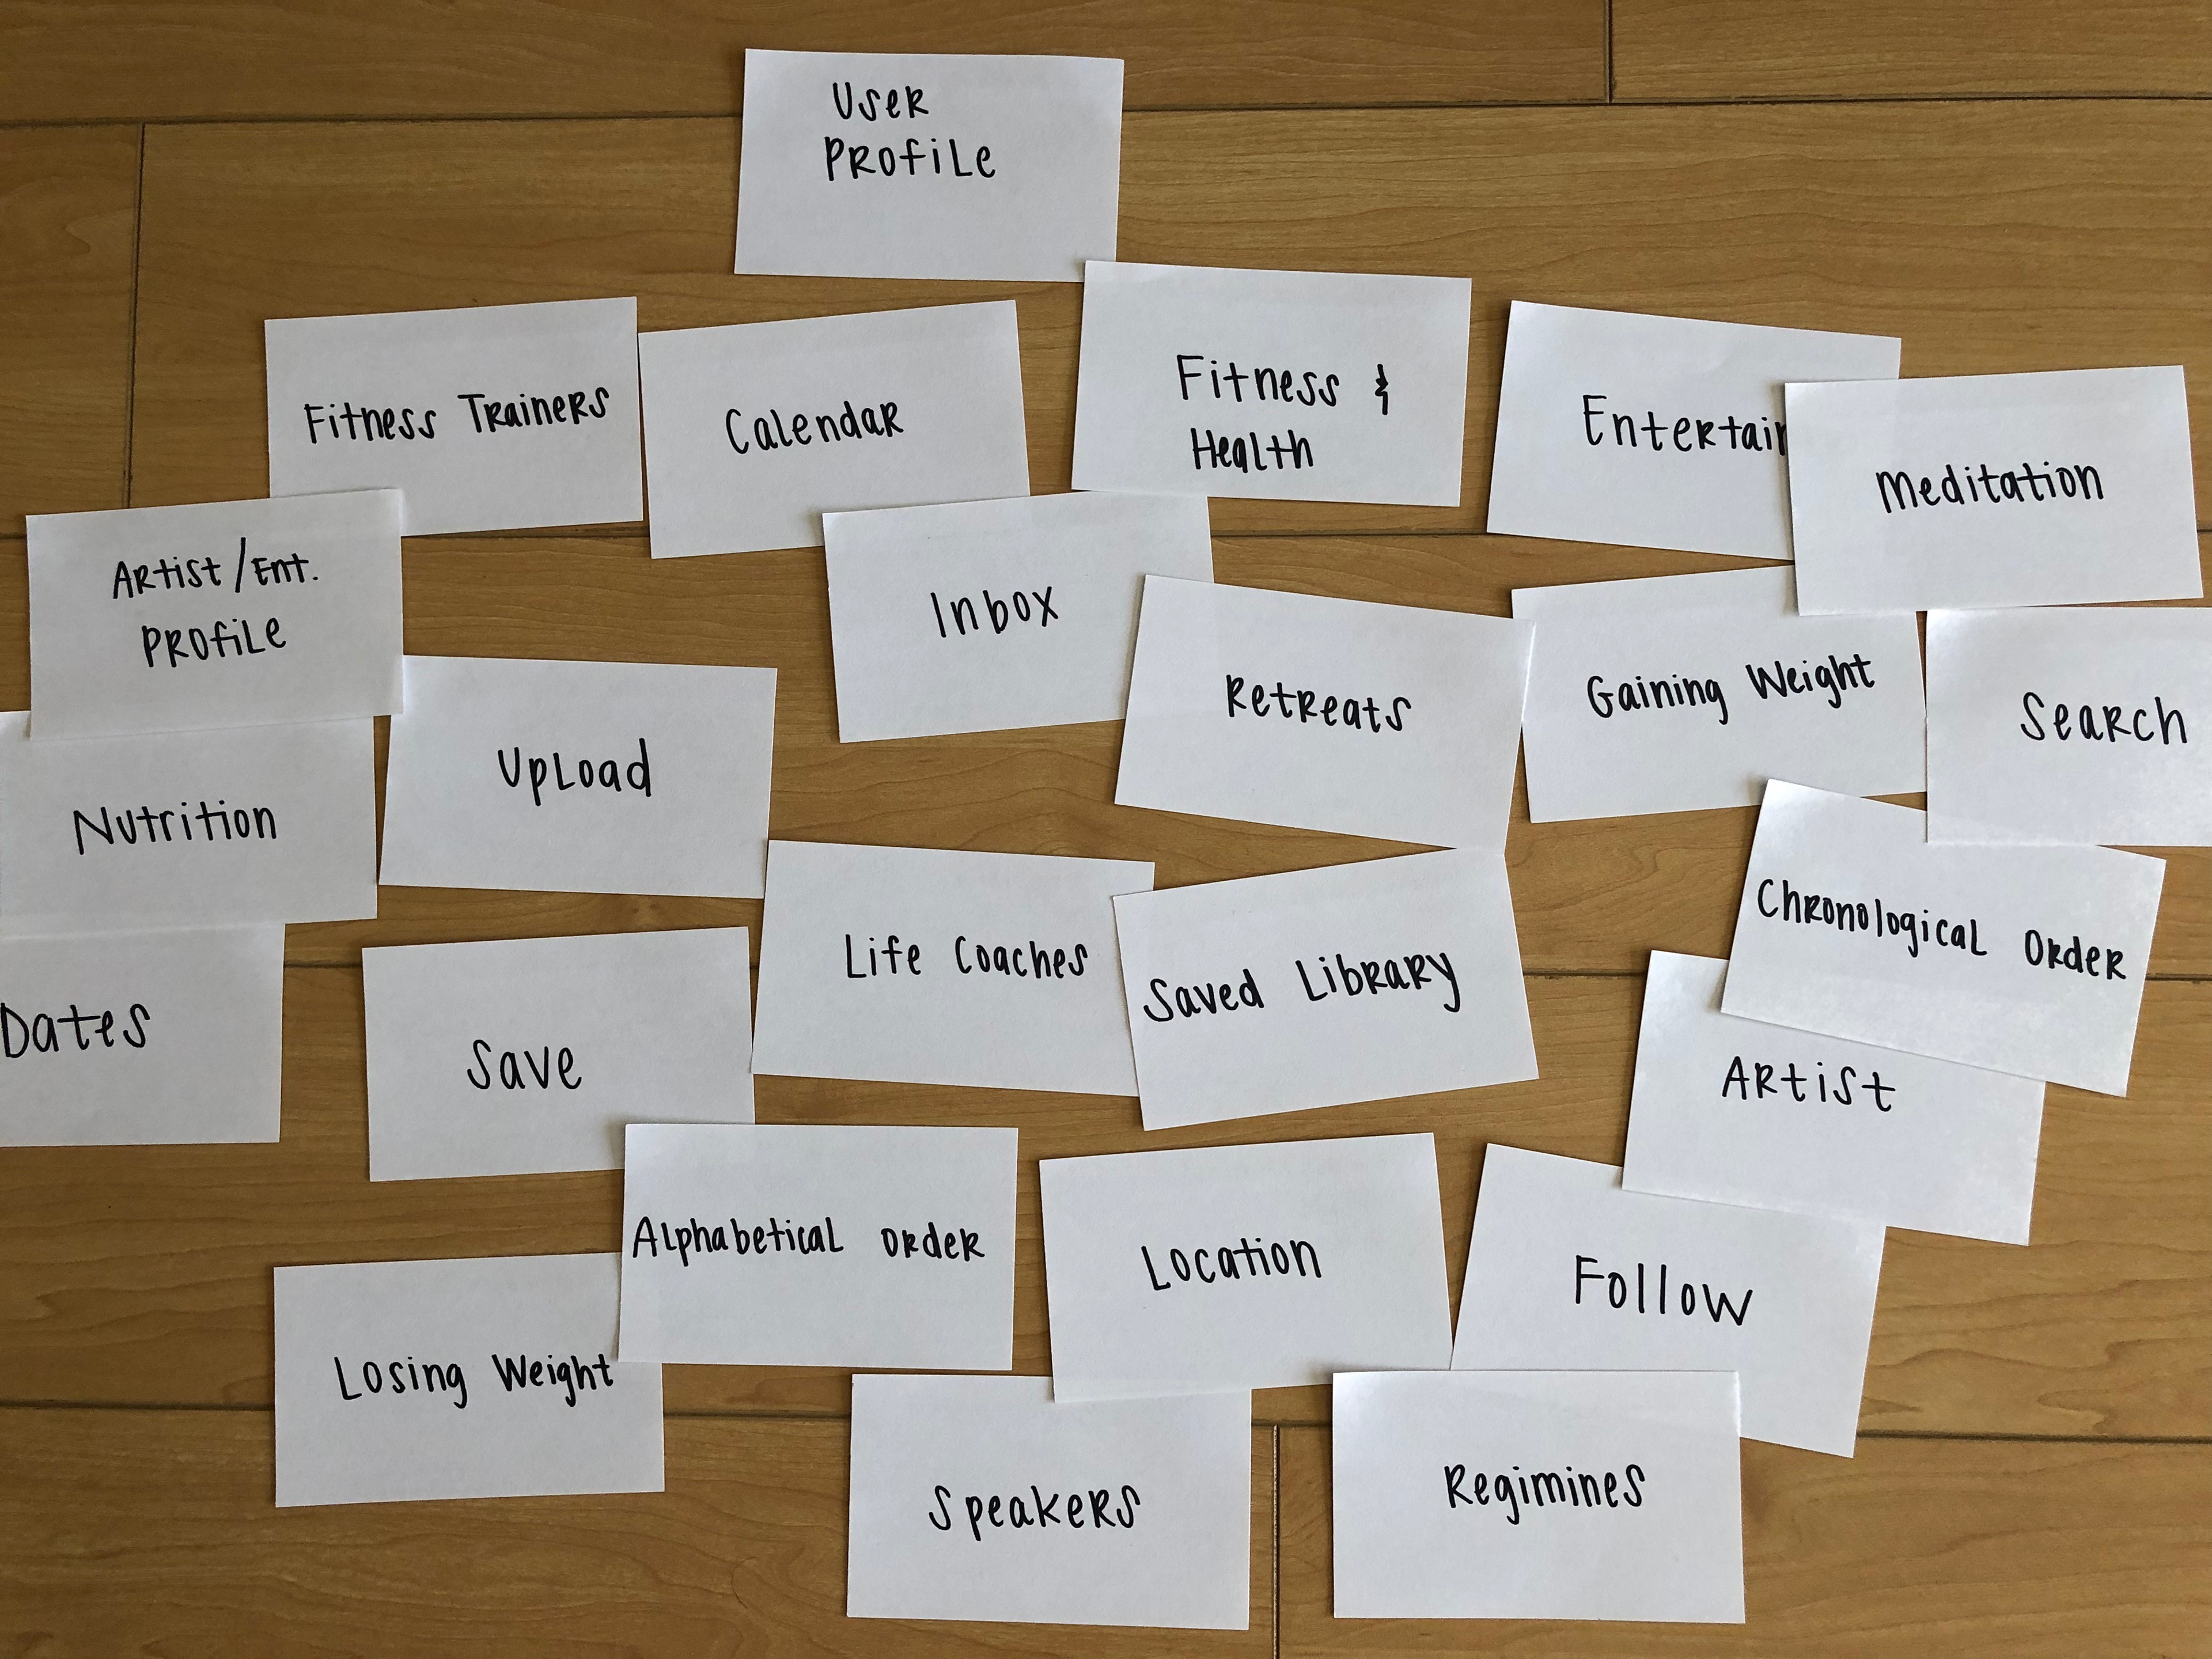 User
Profile
Fitness Trainers
Calendar
Fitness &
Health
Entertain
Meditation
Artist/Ent.
Profile
Inbox
Retreats
Gaining Weight
Search
Nutrition
Upload
Life Coaches
Saved Library
Chronological Order
Dates
Save
Artist
Alphabetical Order
Location
Follow
Losing Weight
Speakers
Regimines